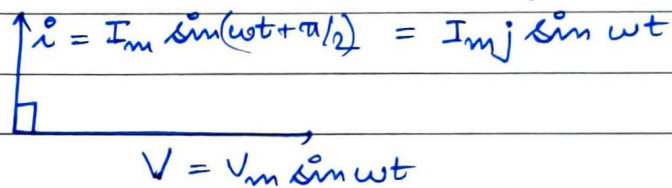 i = Im sin(ωt+π/2) = Im j sin ωt
V = Vm sin ωt